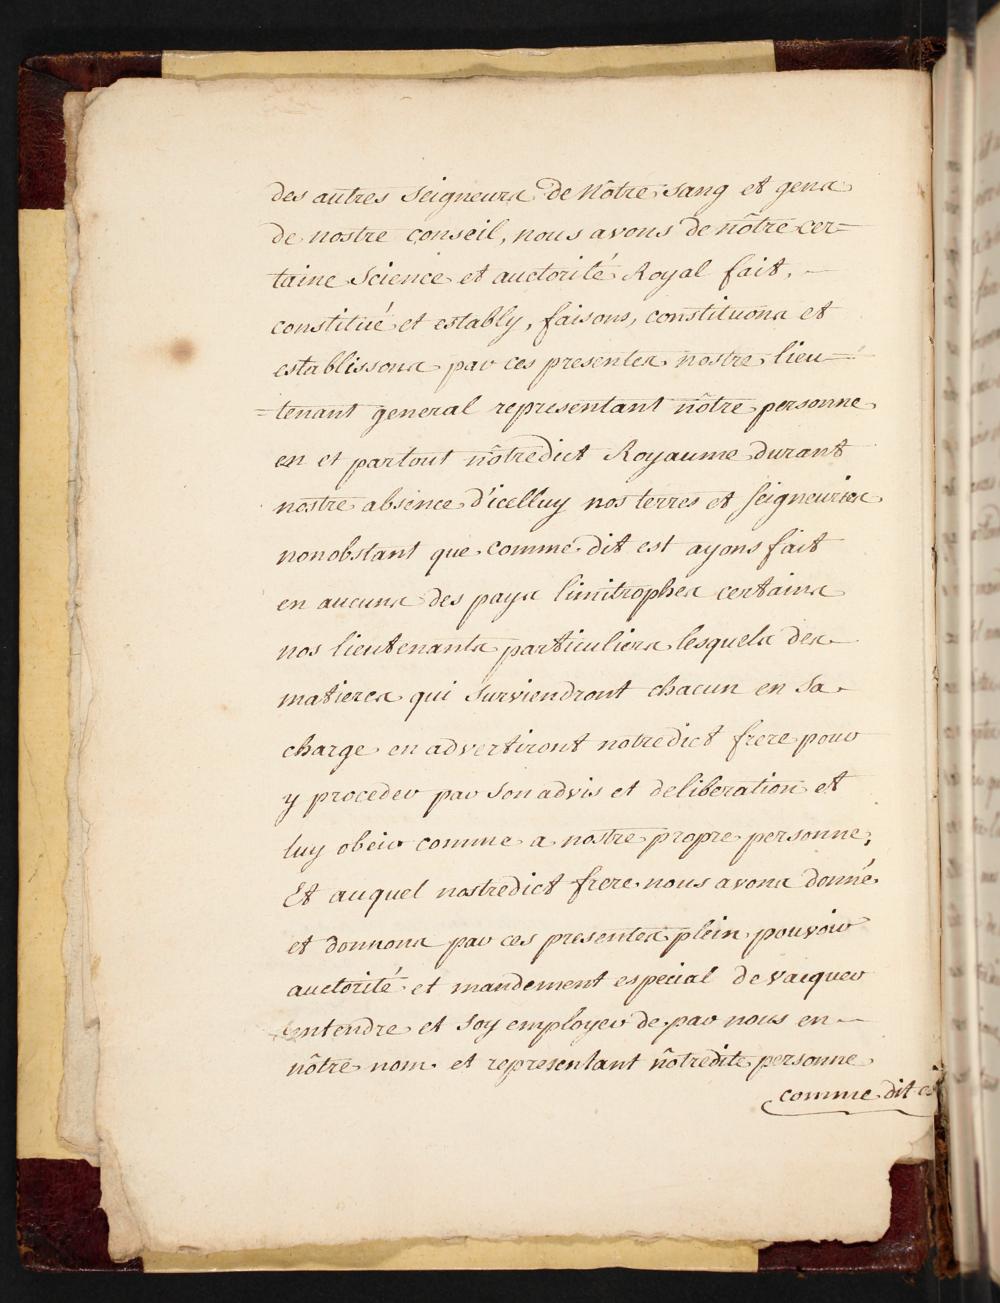 des autres Seigneurs de nôtre sang et gens
de nostre conseil, nous avons de nôtre cer=
taine Science et auctorité Royal fait,
constitué et estably, faisons, constituons et
establissons par ces presentes nostre lieu=
=tenant general representant nôtre personne
en et partout nôtredict Royaume durant
nostre absence d'icelluy nos terres et Seigneuries
nonobstant que comme dit est ayons fait
en aucuns des pays limitrophes certains
nos lieutenants particuliers lesquels des
matieres qui surviendront chacun en sa
charge en advertiront notredict frere pour
y proceder par son advis et deliberation et
luy obeir comme a nostre propre personne;
Et auquel nostredict frere nous avons donné
et donnons par ces presentes plein pouvoir
auctorité et mandement especial de vacquer
entendre et soy employer de par nous en
nôtre nom et representant nôtredite personne
comme dit es